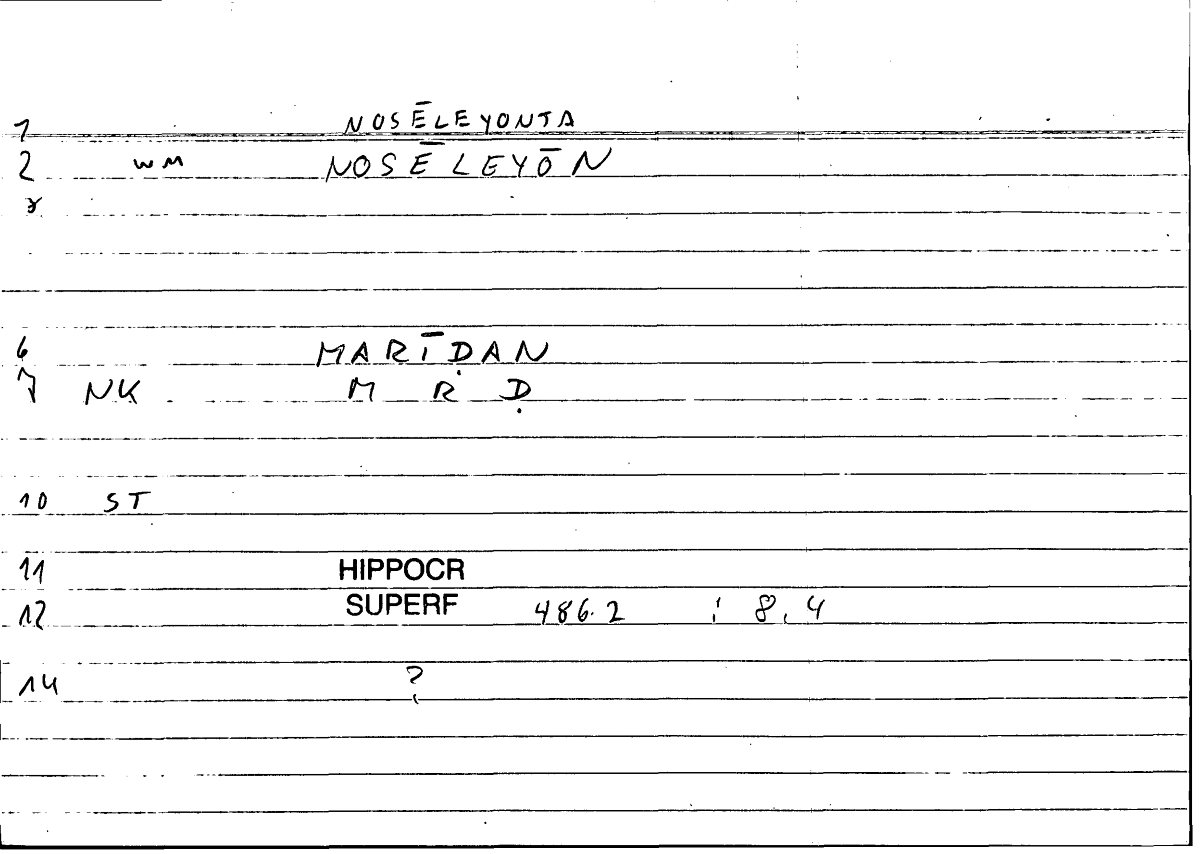 1 NOSĒLEYONTA
2 WM NOSĒLEYŌN
3
6 MARĪḌAN
7 NK M R Ḍ
10 ST
11 HIPPOCR
12 SUPERF 486.2 ; 8,4
14 ?